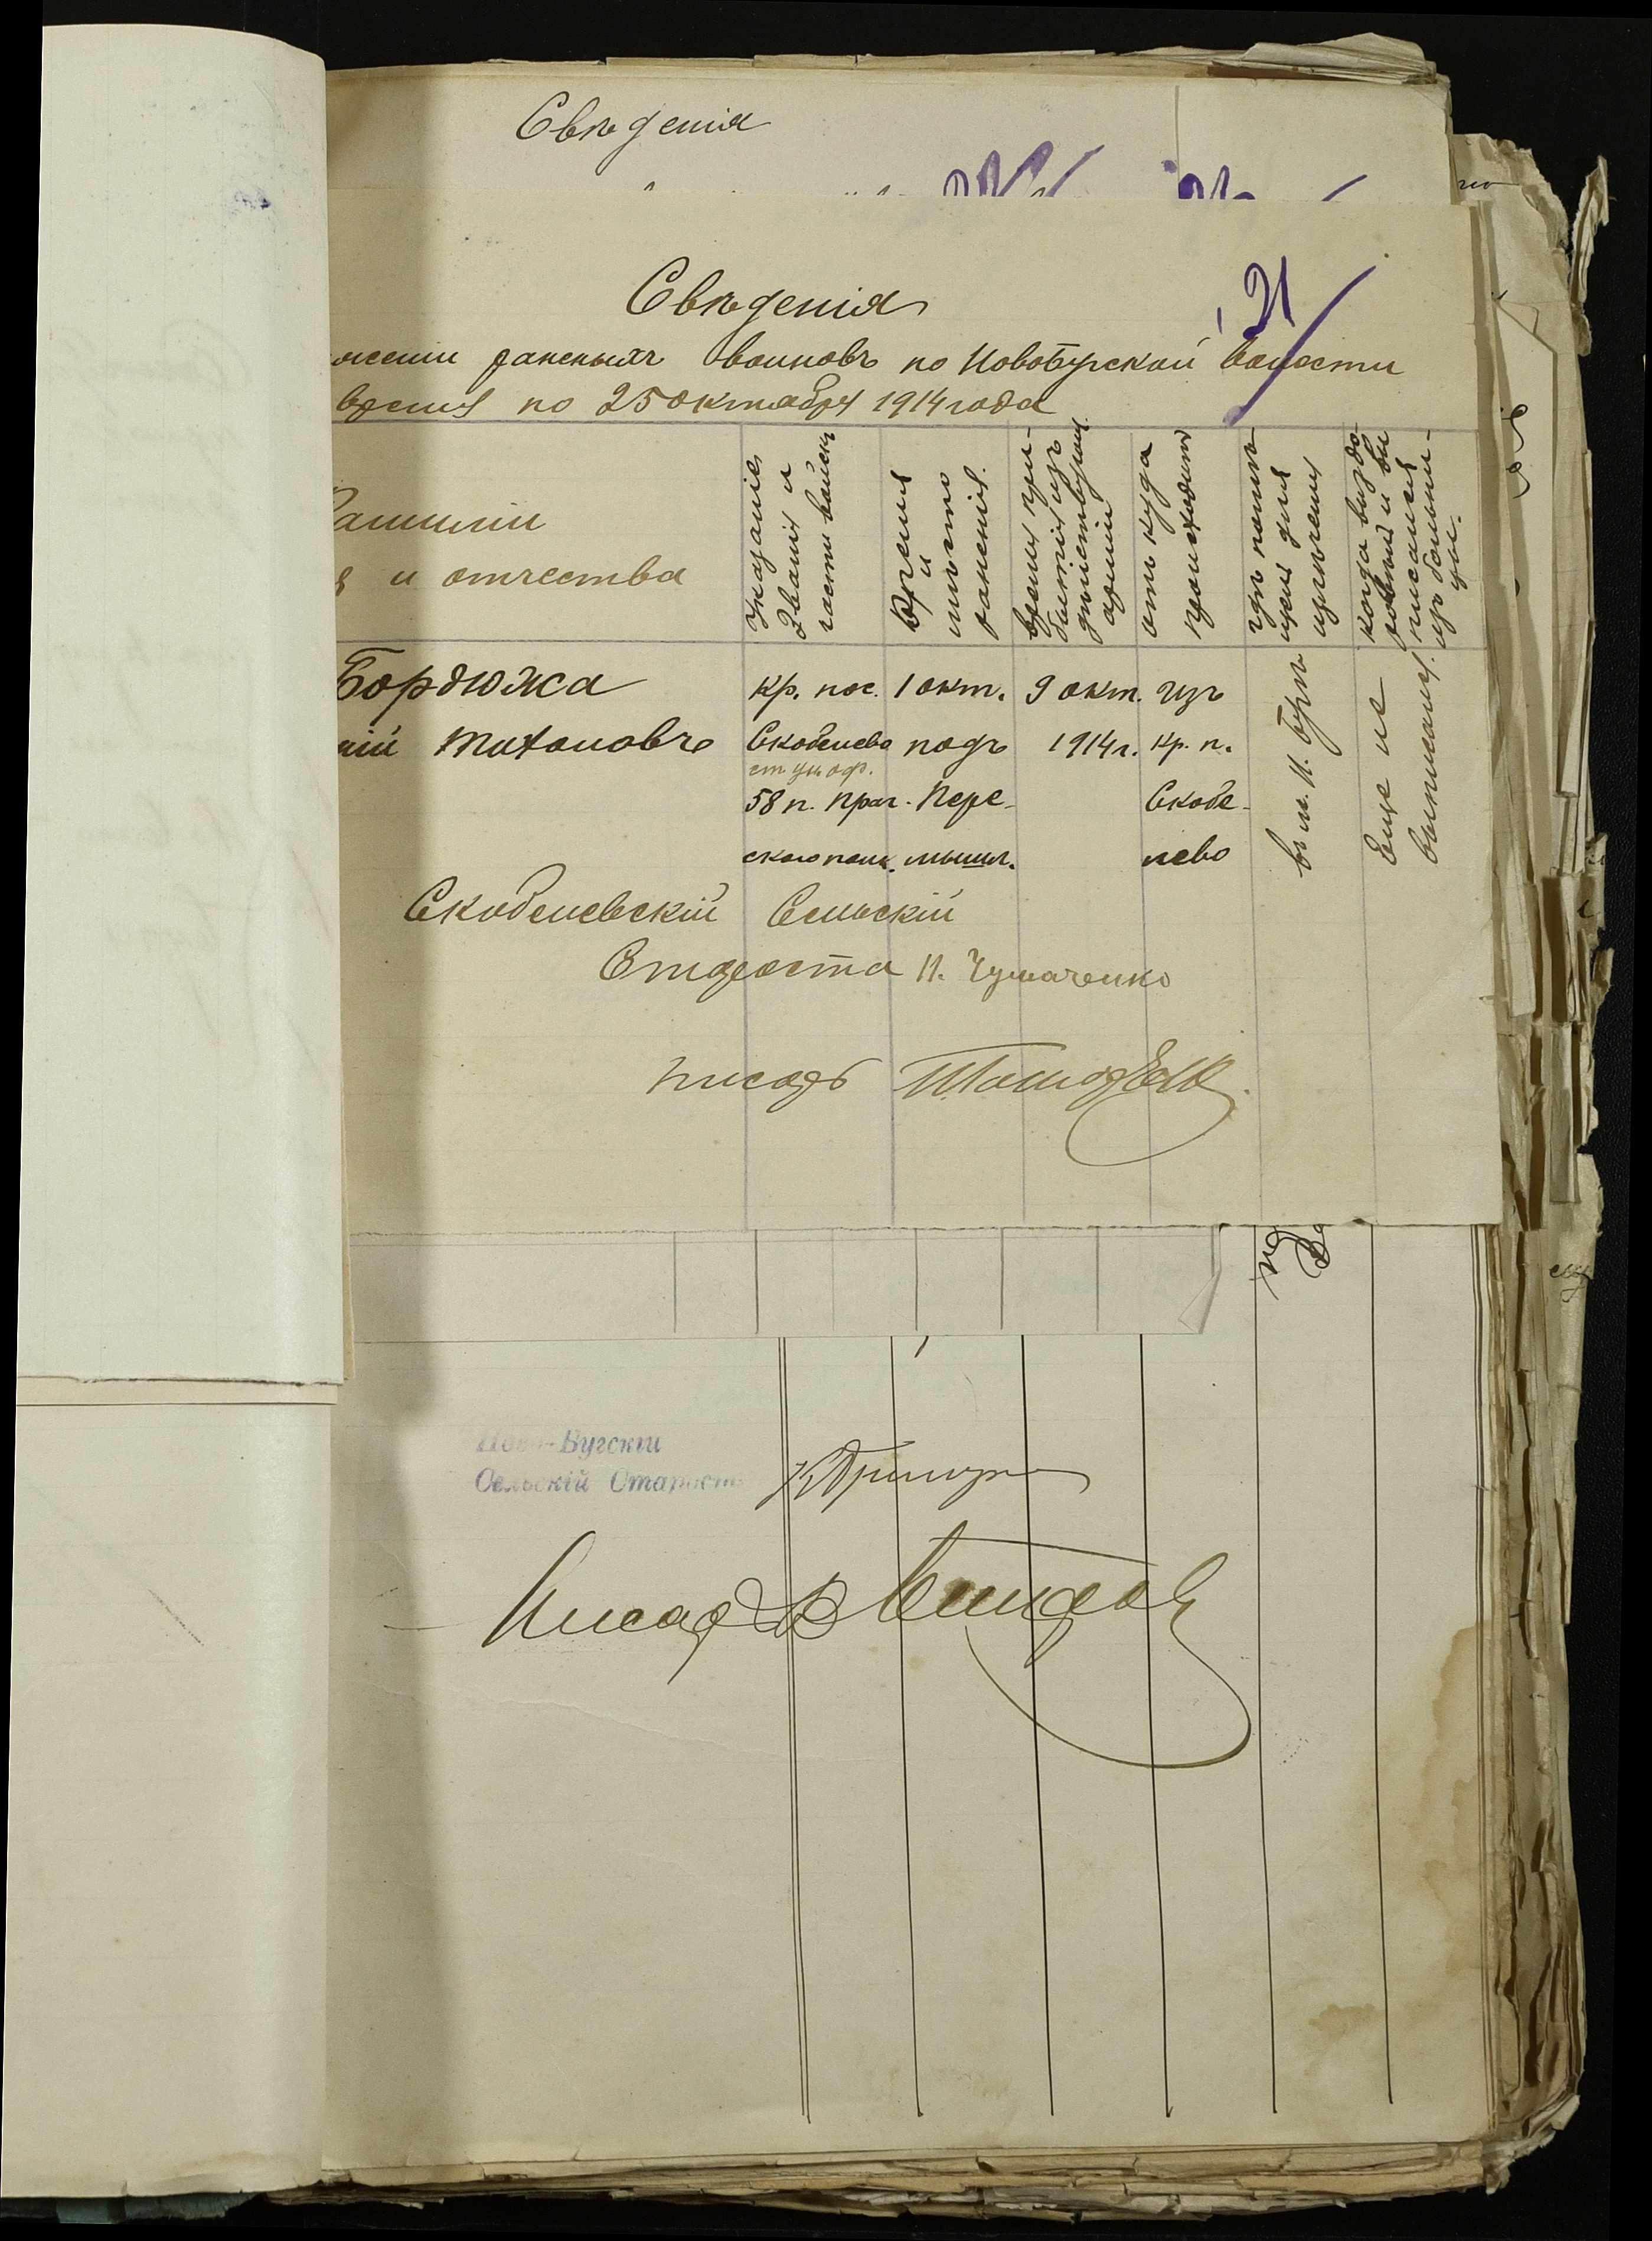 Свѣденія
Свѣденія
31
раненыхъ воиновъ по Новобугской волости
время по 25 октября 1914 года
Фамиліи
и отчества
Указаніе
званія и
части войскъ
Время
и
мѣсто
раненія.
Время при-
бытія изъ
дѣйствующ.
арміи
отъ куда
происходитъ
гдѣ помѣ-
щенъ для
излѣченія
когда выздо-
ровѣлъ и вы
писался
изъ больни-
цы.
Бордюжа
ній Тихоновъ
кр. пос.
Скобелева
ст. ун. оф.
58 п. Праг.
скаго полк.
1 окт.
подъ
Пере-
мышл.
9 окт.
1914 г.
изъ
кр. п.
Скобе-
лево
въ м. Н. Бугѣ
Еще не
выписался.
Скобелевскій Сельскій
Староста И. Чумаченко
писарь
Ново-Бугскій
Сельскій Староста
Писарь